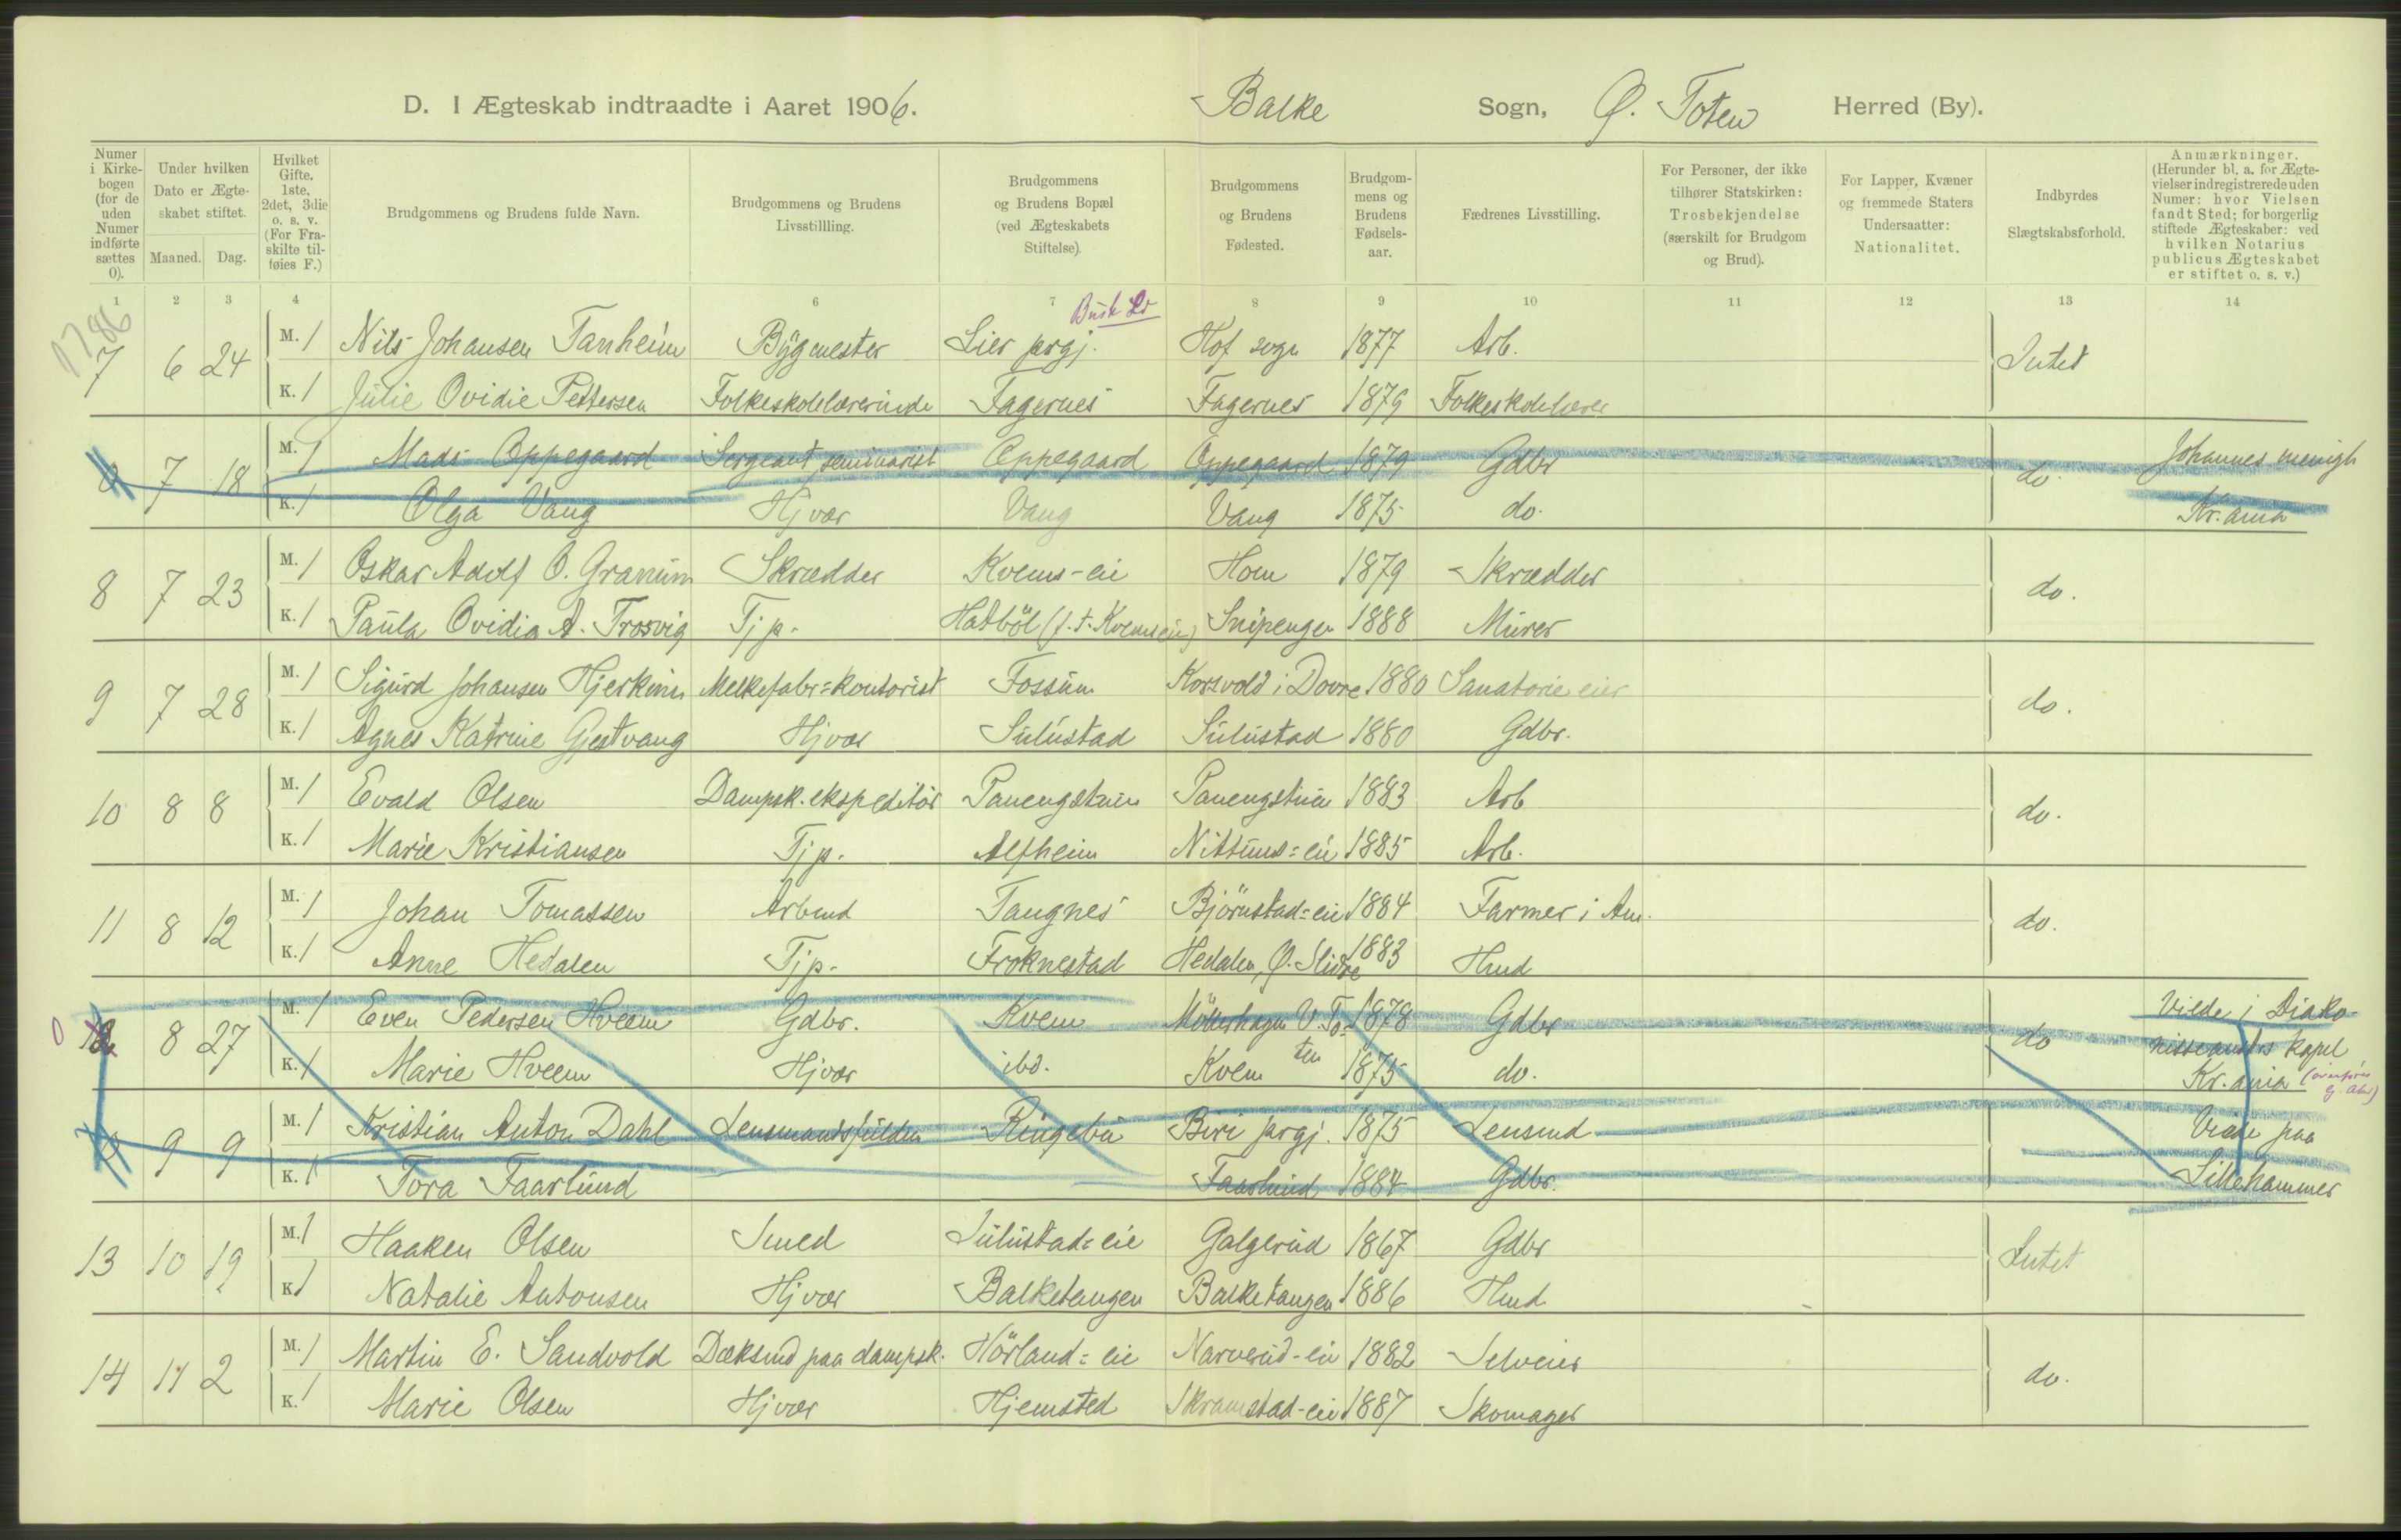 D. I Ægteskab indtraadte i Aaret 1906. Balke Sogn, Ø. Toten Herred (By).
Numer i Kirkebogen (for de uden Numer indførte sættes 0).
Under hvilken Dato er Ægteskabet stiftet. Maaned. Dag.
Hvilket Gifte. 1ste, 2det, 3die o. s. v. (For Fraskilte tilføies F.)
Brudgommens og Brudens fulde Navn.
Brudgommens og Brudens Livsstillling.
Brudgommens og Brudens Bopæl (ved Ægteskabets Stiftelse).
Brudgommens og Brudens Fødested.
Brudgommens og Brudens Fødselsaar.
Fædrenes Livsstilling.
For Personer, der ikke tilhører Statskirken: Trosbekjendelse (særskilt for Brudgom og Brud).
For Lapper, Kvæner og fremmede Staters Undersaatter: Nationalitet.
Indbyrdes Slægtskabsforhold.
Anmærkninger. (Herunder bl. a. for Ægtevielser indregistrerede uden Numer: hvor Vielsen fandt Sted; for borgerlig stiftede Ægteskaber: ved hvilken Notarius publicus Ægteskabet er stiftet o. s. v.)
1 2 3 4 6 7 8 9 10 11 12 13 14
1786
7 6 24 M. 1 Nils Johansen Tanheim Bygmester Lier prgj. Hof sogn 1877 Arb. Intet
K. 1 Julie Ovidie Pettersen Folkeskolelærerinde Fagernes Fagernes 1879 Folkeskolelærer
7 18 M. 1 Mads Oppegaard Sergeant, seminarist Oppegaard Oppegaard 1879 Gdbr do. Johannes menigh
K. 1 Olga Vang Hjvær Vang Vang 1875 do. Kr.ania
8 7 23 M. 1 Oskar Adolf O. Granum Skrædder Kvems-eie Hom 1879 Skrædder do.
K. 1 Paula Ovidia A. Trosvig Tjp. Hatböl (f. t. Kvemseie) Snipengen 1888 Murer
9 7 28 M. 1 Sigurd Johansen Hjerkinn Melkefabr=kontorist Fossum Korsvold i Dovre 1880 Sanatorieeier do.
K. 1 Agnes Katrine Gjestvang Hjvær Sulustad Sulustad 1880 Gdbr.
10 8 8 M. 1 Evald Olsen Dampsk.ekspeditör Panengstuen Panengstuen 1883 Arb do.
K. 1 Marie Kristiansen Tjp. Alfheim Nittuns=eie 1885 Arb.
11 8 12 M. 1 Johan Tomassen Arbmd Tangnes Björnstad=eie 1884 Farmer i Am. do.
K. 1 Anne Hedalen Tjp. Froknestad Hedalen, Ø. Slidre 1883 Hmd
0 12 8 27 M. 1 Even Pedersen Hveem Gdbr. Kvem Möllerhagen V. To- 1878 Gdbr do Viede i Diako-
K. 1 Marie Hveem Hjvær ibd. Kvem ten 1875 do. nisseanst.s kapel
Kr.ania
9 9 M. 1 Kristian Anton Dahl Lensmandsfuldm Ringebu Biri prgj. 1875 Lensmd Viede paa
K. 1 Tora Faarlund Faarlund 1884 Gdbr. Lillehammer
13 10 19 M. 1 Haaken Olsen Smed Sulustad=eie Galgerud 1867 Gdbr Intet
K. 1 Natalie Antonsen Hjvær Balketangen Balketangen 1886 Hmd
14 11 2 M. 1 Martin E. Sandvold Dæksmd paa dampsk. Hörland=eie Narverud-eie 1882 Selveier do.
K. 1 Marie Olsen Hjvær Hjemsted Skramstad-eie 1887 Skomager